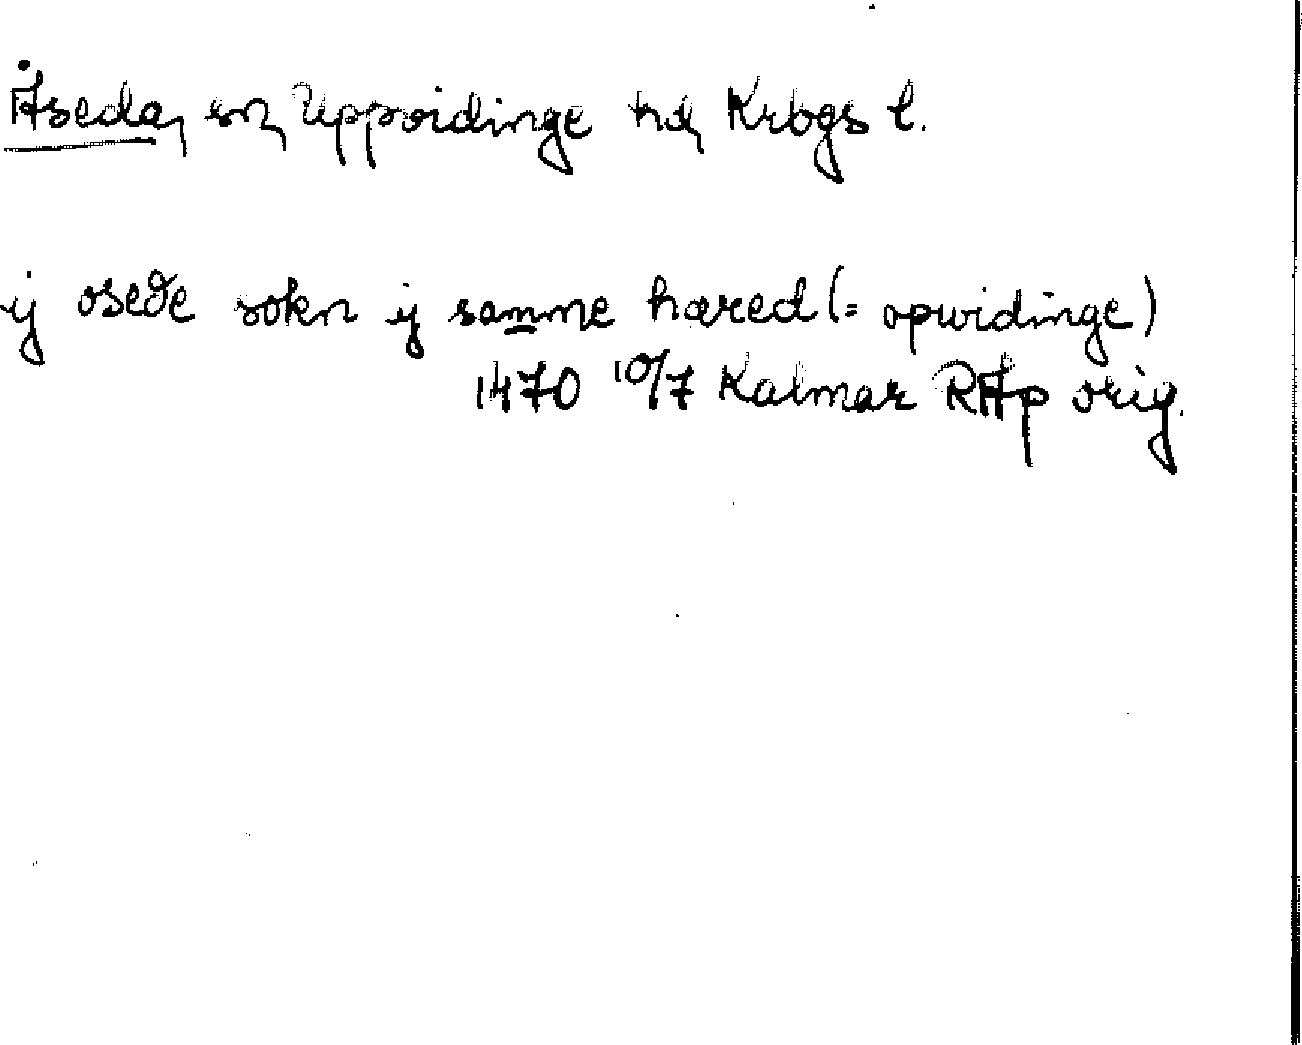 Åseda, sn, Uppvidinge hd, Krbgs l.
ij osede sokn ij samme hæred (= opwidinge)
1470 10/7 Kalmar RAp orig.